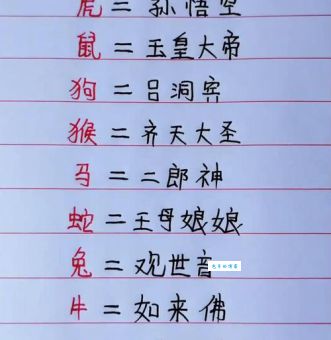 虎＝孙悟空
鼠＝玉皇大帝
狗＝吕洞宾
猴＝齐天大圣
马＝二郎神
蛇＝王母娘娘
兔＝观世音
牛＝如来佛